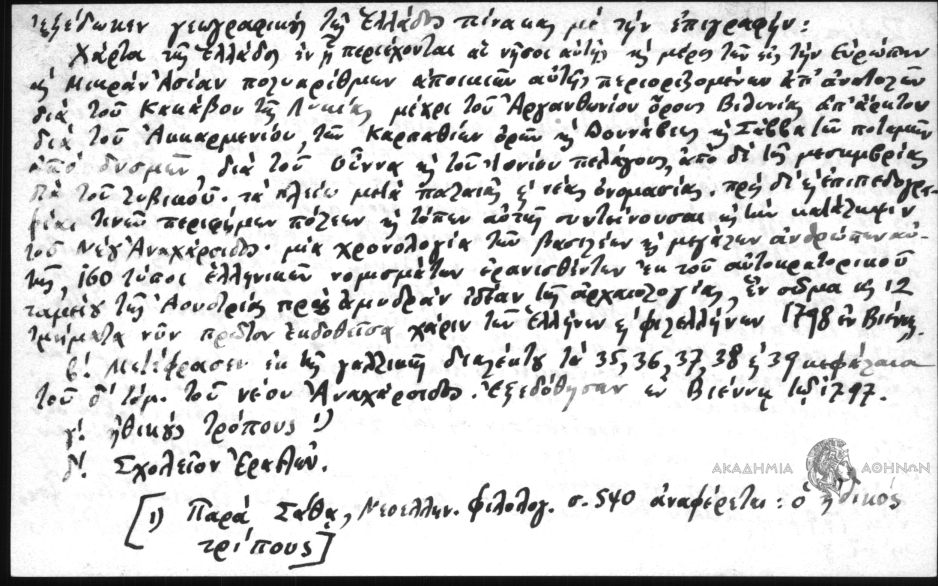 ἐξέδωκεν γεωγραφικὴ τῆς Ἑλλάδος πίνακας μὲ τὴν ἐπιγραφήν:
Χάρτα τῆς Ἑλλάδος ἐν ᾗ περιέχονται αἱ νῆσοι αὐτῆς κ̀ μέρος τῶν εἰς τὴν Εὐρώπην
κ̀ Μικρὰν Ἀσίαν πολυαρίθμων ἀποικιῶν αὐτῆς περιοριζομένων ἀπ' ἀνατολῶν
διὰ τοῦ Κακάβου τῆς Λυκίας μέχρι τοῦ Ἀργανθωνίου ὄρους Βιθυνίας, ἀπ' ἄρκτου
διὰ τοῦ Ἀκκαρμενίου, τῶν Καρπαθίων ὀρῶν κ̀ Δουνάβεως κ̀ Σάββα τῶν ποταμῶν
ἀπὸ δυσμῶν, διὰ τοῦ Οὔννα κ̀ τοῦ Ἰονίου πελάγους, ἀπὸ δὲ τῆς μεσημβρίας
διὰ τοῦ Λυβικοῦ. τὰ πλείω μετὰ παλαιᾶς κ̀ νέας ὀνομασίας. πρὸς δὲ κ̀ ἐπιπεδογρα-
φίαι τινῶν περιφήμων πόλεων κ̀ τόπων αὐτῆς συντείνουσαι εἰς τὴν κατάληψιν
τοῦ Νέου Ἀναχάρσιδος. μία χρονολογία τῶν βασιλέων κ̀ μεγάλων ἀνθρώπων αὐ-
τῆς, 160 τύποι ἑλληνικῶν νομισμάτων ἐρανισθέντων ἐκ τοῦ αὐτοκρατορικοῦ
ταμείου τῆς Ἀουστρίας πρὸς ἀμυδρὰν ἰδέαν τῆς ἀρχαιολογίας, ἓν σῶμα εἰς 12
τμήματα νῦν πρῶτον ἐκδοθεῖσα χάριν τῶν Ἑλλήνων κ̀ φιλελλήνων 1798 ἐν Βιέννῃ"
β'. Μετέφρασεν ἐκ τῆς γαλλικῆς διαλέκτου τὰ 35, 36, 37, 38 κ̀ 39 κεφάλαια
τοῦ δ' τόμ. τοῦ νέου Ἀναχάρσιδος. Ἐξεδόθησαν ἐν Βιέννῃ τῷ 1797.
γ'. ἠθικοὺς τρόπους 1)
δ'. Σχολεῖον Ἐραστῶν.
[1) Παρὰ Σάθα, Νεοελλην. φιλολογ. σ. 540 ἀναφέρεται: ὁ ἠθικός
τρίπους]
ΑΚΑΔΗΜΙΑ ΑΘΗΝΩΝ